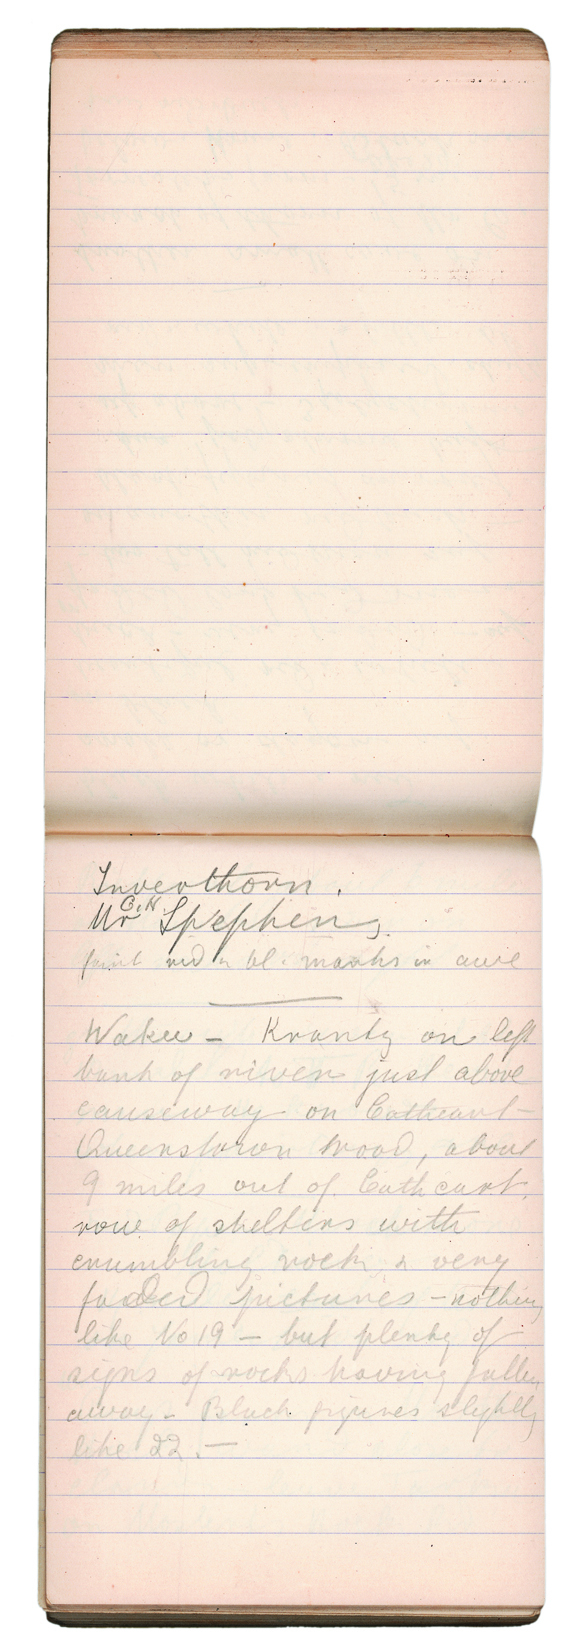 Inverthorn.
Mr C.N Stephens.
faint red & bl. marks in cave
Waku – Krantz on left
bank of river just above
causeway on Cathcart –
Queenstown road, about
9 miles out of Cathcart.
row of shelters with
crumbling rock, & very
faded pictures – nothing
like No 19 – but plenty of
signs of rocks having fallen
away – Black figures slightly
like 22. –